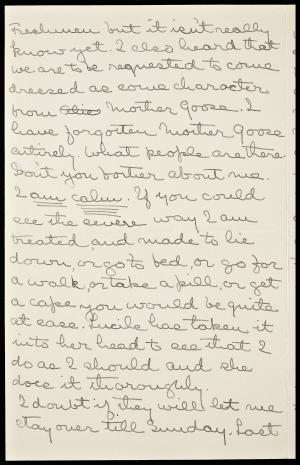 Freshmen but it isn't really
know yet. I also heard that
we are to be requested to come
dressed as some character
from Mother Goose. I
have forgotten Mother Goose
entirely. What people are there.
Don't you bother about me.
I am calm. If you could
see the severe way I am
treated, and made to lie
down, or go to bed, or go for
a walk, or take a pill, or get
a cape, you would be quite
at ease. Lucile has taken it
into her head to see that I
do as I should and she
does it thoroughly.
I doubt if they will let me
stay over till Sunday. Last